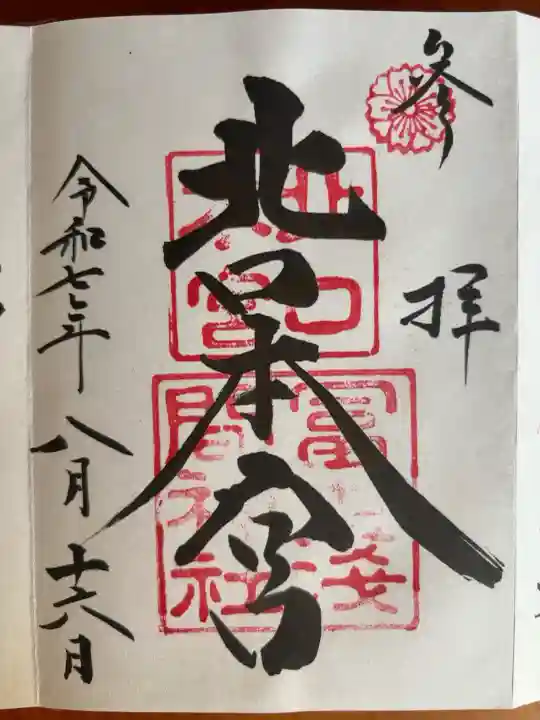 参拝
北口本宮
北口
本宮
冨士浅
間神社
令和七年八月十六日